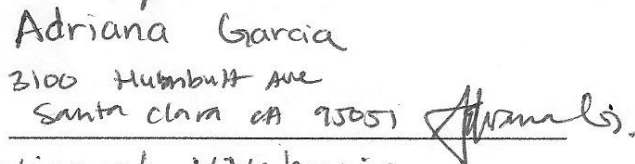 Adriana Garcia
3100 Humbult Ave
Santa Clara CA 95051